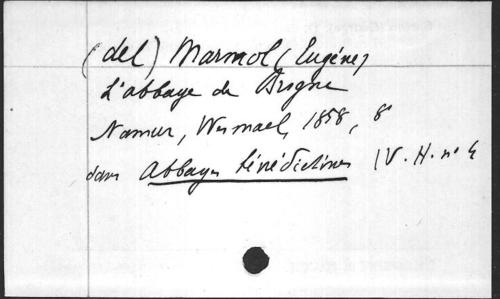 (del) Marmol (Eugène)
L'abbaye de Brogne
Namur, Wesmael, 1858, 8°
dans Abbayes bénédictines IV. H. n° 4